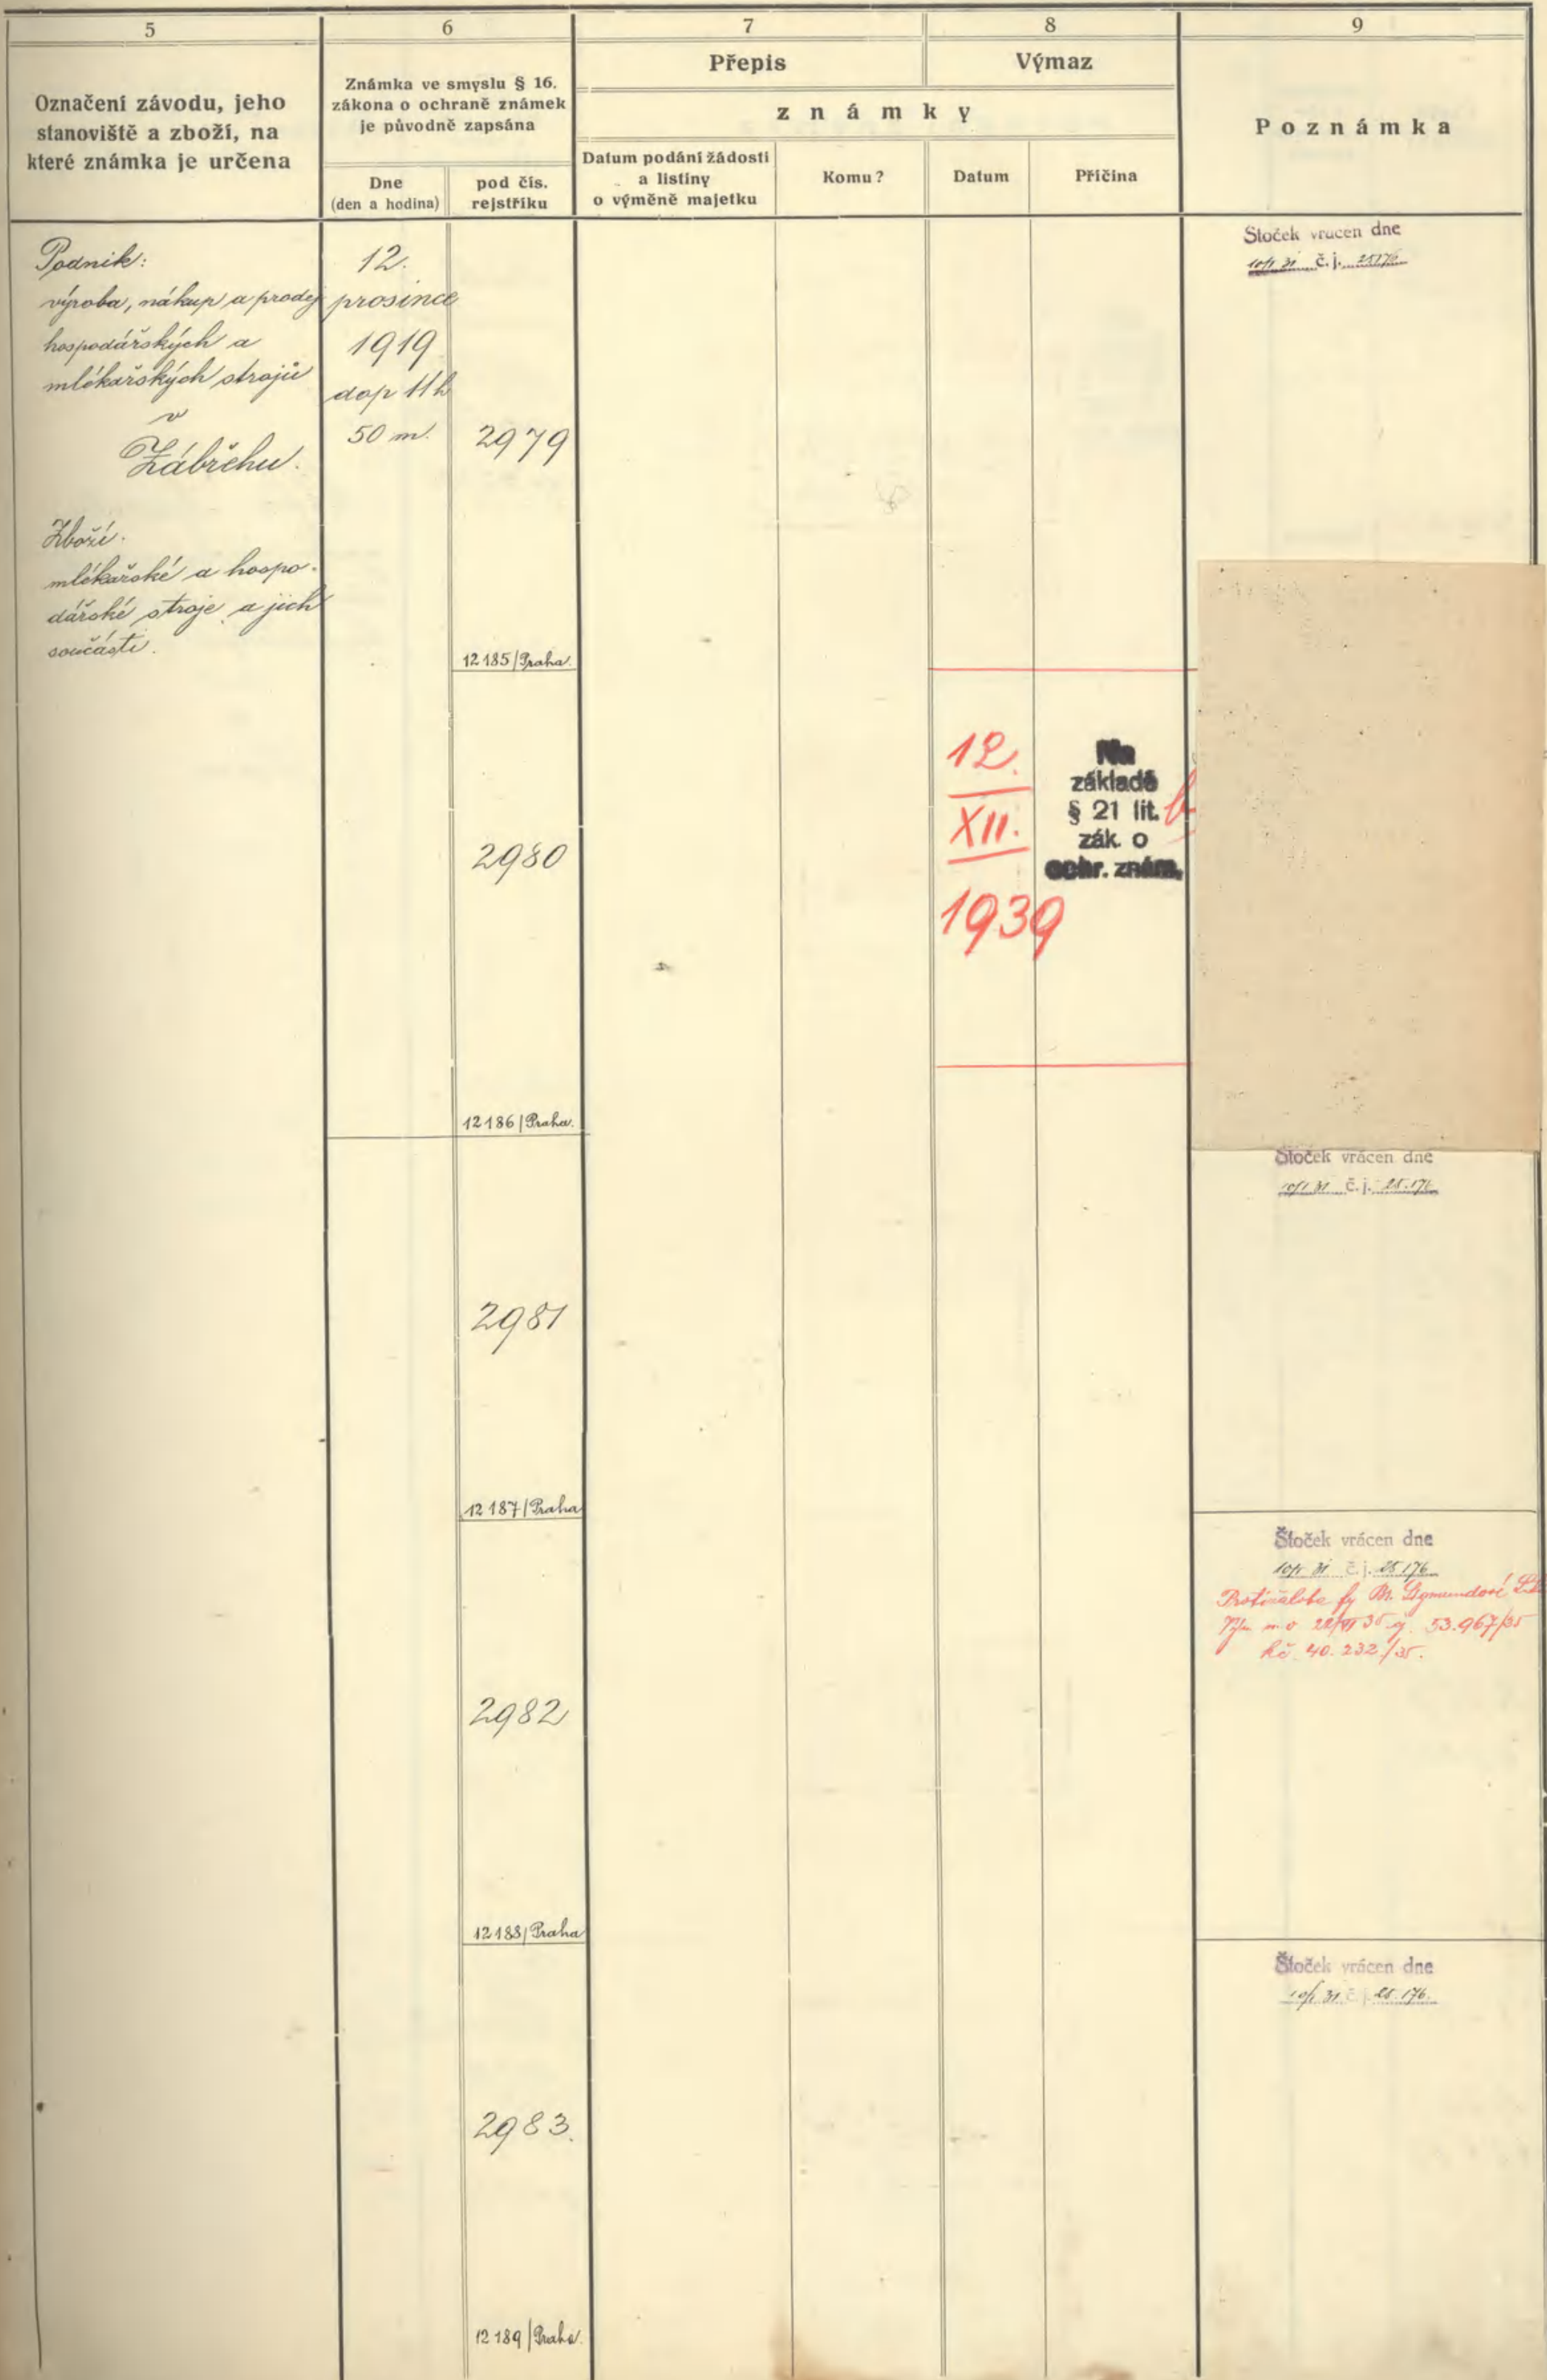 5
6
7
8
9
Označení závodu, jeho
stanoviště a zboží, na
které známka je určena
Známka ve smyslu § 16.
zákona o ochraně známek
je původně zapsána
Dne
(den a hodina)
pod čís.
rejstříku
Přepis
Výmaz
známky
Datum podání žádosti
a listiny
o výměně majetku
Komu?
Datum
Příčina
Poznámka
Podnik:
výroba, nákup a prodej
hospodářských a
mlékařských strojů
v
Zábřehu.
Zboží.
mlékařské a hospo-
dářské stroje a jich
součásti.
12.
prosince
1919
dop 11h
50 m.
2979
12185/Praha.
2980
12186/Praha.
2981
12187/Praha
2982
12188/Praha
2983.
12189/Praha.
12.
XII.
1939
Na
základě
§ 21 lit. b
zák. o
ochr. znám.
Štoček vrácen dne
10/1 31 č. j. 25176
Štoček vrácen dne
10/1 31 č. j. 25.176
Štoček vrácen dne
10/1 31 č. j. 25176
Protižaloba fy M.
53.967/35
40.232/35.
Štoček vrácen dne
10/1 31 č. j. 25.176.